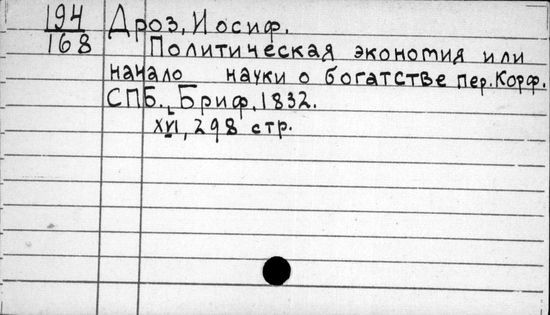 194
168
Дроз, Иосиф.
Политическая экономия или
начало науки о богатстве пер. Корф.
СПБ., Бриф, 1832.
XVI, 298 стр.